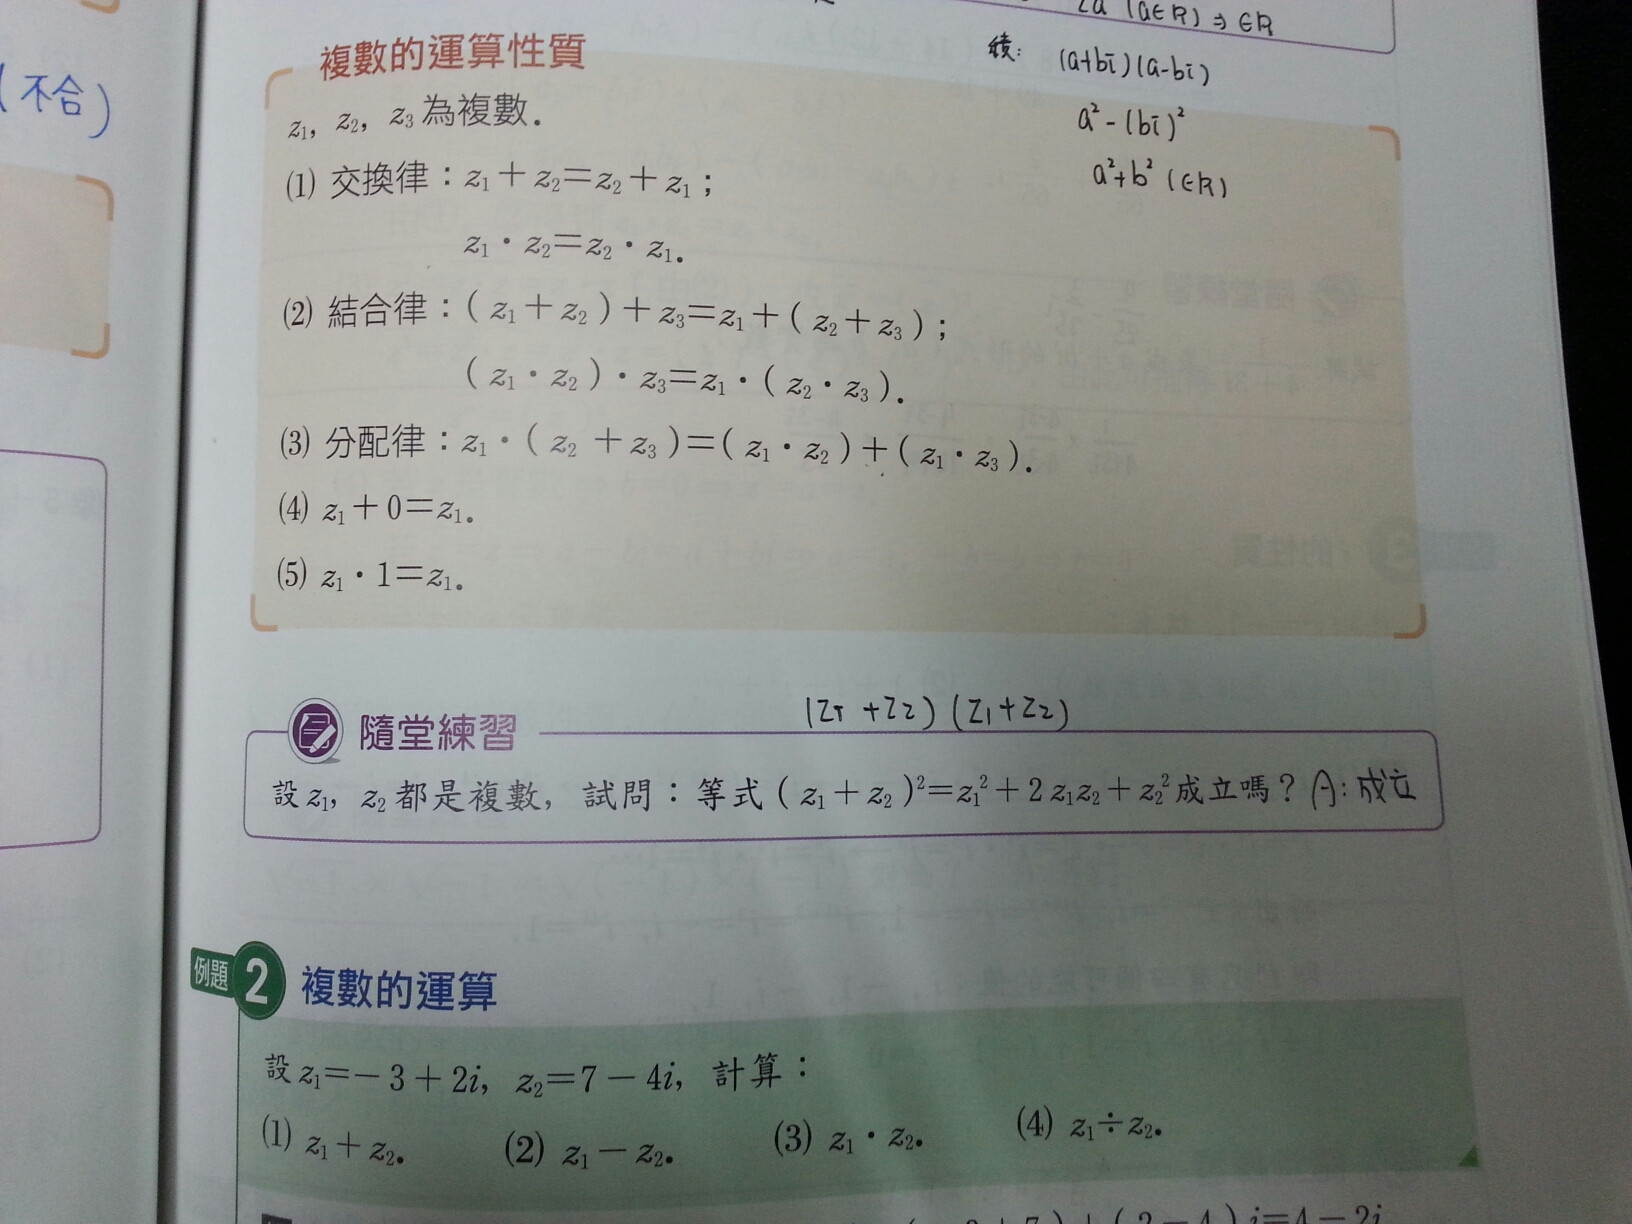 2a (a∈R) ⇒ ∈R
複數的運算性質
積: (a+bi)(a-bi)
a²-(bi)²
a²+b² (∈R)
(不合)
z₁, z₂, z₃為複數.
(1) 交換律:z₁+z₂=z₂+z₁;
z₁·z₂=z₂·z₁.
(2) 結合律:(z₁+z₂)+z₃=z₁+(z₂+z₃);
(z₁·z₂)·z₃=z₁·(z₂·z₃).
(3) 分配律:z₁·(z₂+z₃)=(z₁·z₂)+(z₁·z₃).
(4) z₁+0=z₁.
(5) z₁·1=z₁.
(z₁+z₂)(z₁+z₂)
隨堂練習
設z₁, z₂都是複數, 試問:等式(z₁+z₂)²=z₁²+2z₁z₂+z₂²成立嗎? A:成立
例題2 複數的運算
設z₁=-3+2i, z₂=7-4i, 計算:
(1) z₁+z₂. (2) z₁-z₂. (3) z₁·z₂. (4) z₁÷z₂.
(-3+7)+(2-4)i=4-2i